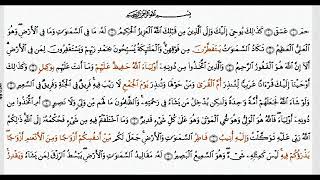 بِسْمِ اللَّهِ الرَّحْمَٰنِ الرَّحِيمِ
حمٓ عٓسٓقٓ كَذَٰلِكَ يُوحِىٓ إِلَيْكَ وَإِلَى ٱلَّذِينَ مِن قَبْلِكَ ٱللَّهُ ٱلْعَزِيزُ ٱلْحَكِيمُ لَهُۥ مَا فِى ٱلسَّمَٰوَٰتِ وَمَا فِى ٱلْأَرْضِ وَهُوَ
ٱلْعَلِىُّ ٱلْعَظِيمُ تَكَادُ ٱلسَّمَٰوَٰتُ يَتَفَطَّرْنَ مِن فَوْقِهِنَّ وَٱلْمَلَٰٓئِكَةُ يُسَبِّحُونَ بِحَمْدِ رَبِّهِمْ وَيَسْتَغْفِرُونَ لِمَن فِى ٱلْأَرْضِ
أَلَآ إِنَّ ٱللَّهَ هُوَ ٱلْغَفُورُ ٱلرَّحِيمُ وَٱلَّذِينَ ٱتَّخَذُوا۟ مِن دُونِهِۦٓ أَوْلِيَآءَ ٱللَّهُ حَفِيظٌ عَلَيْهِمْ وَمَآ أَنتَ عَلَيْهِم بِوَكِيلٍ وَكَذَٰلِكَ
أَوْحَيْنَآ إِلَيْكَ قُرْءَانًا عَرَبِيًّا لِّتُنذِرَ أُمَّ ٱلْقُرَىٰ وَمَنْ حَوْلَهَا وَتُنذِرَ يَوْمَ ٱلْجَمْعِ لَا رَيْبَ فِيهِ فَرِيقٌ فِى ٱلْجَنَّةِ وَفَرِيقٌ فِى
ٱلسَّعِيرِ وَلَوْ شَآءَ ٱللَّهُ لَجَعَلَهُمْ أُمَّةً وَٰحِدَةً وَلَٰكِن يُدْخِلُ مَن يَشَآءُ فِى رَحْمَتِهِۦ وَٱلظَّٰلِمُونَ مَا لَهُم مِّن وَلِىٍّ وَلَا نَصِيرٍ أَمِ
ٱتَّخَذُوا۟ مِن دُونِهِۦٓ أَوْلِيَآءَ فَٱللَّهُ هُوَ ٱلْوَلِىُّ وَهُوَ يُحْىِ ٱلْمَوْتَىٰ وَهُوَ عَلَىٰ كُلِّ شَىْءٍ قَدِيرٌ وَمَا ٱخْتَلَفْتُمْ فِيهِ مِن شَىْءٍ فَحُكْمُهُۥٓ إِلَى ٱللَّهِ
ذَٰلِكُمُ ٱللَّهُ رَبِّى عَلَيْهِ تَوَكَّلْتُ وَإِلَيْهِ أُنِيبُ فَاطِرُ ٱلسَّمَٰوَٰتِ وَٱلْأَرْضِ جَعَلَ لَكُم مِّنْ أَنفُسِكُمْ أَزْوَٰجًا وَمِنَ ٱلْأَنْعَٰمِ أَزْوَٰجًا
يَذْرَؤُكُمْ فِيهِ لَيْسَ كَمِثْلِهِۦ شَىْءٌ وَهُوَ ٱلسَّمِيعُ ٱلْبَصِيرُ لَهُۥ مَقَالِيدُ ٱلسَّمَٰوَٰتِ وَٱلْأَرْضِ يَبْسُطُ ٱلرِّزْقَ لِمَن يَشَآءُ وَيَقْدِرُ